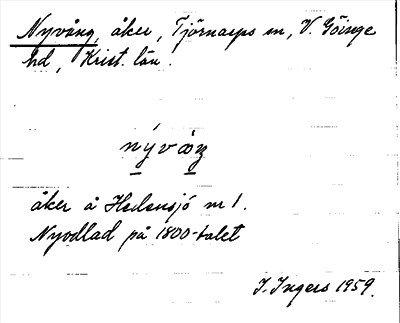 Nyvång, åker, Tjörnarps sn, V. Göinge
hd, Krist. län.
nývåŋ
åker å Hedensjö nr 1.
Nyodlad på 1800-talet
I. Ingers 1959.